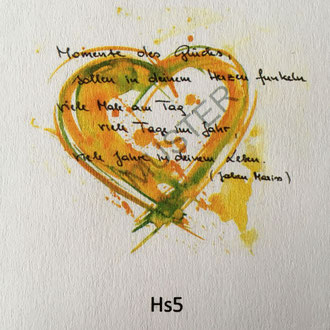 Momente des Glücks,
sollen in deinem Herzen funkeln
viele Male am Tag
viele Tage im Jahr
viele Jahre in deinem Leben.
(Jochen Mariss)
MUSTER
Hs5